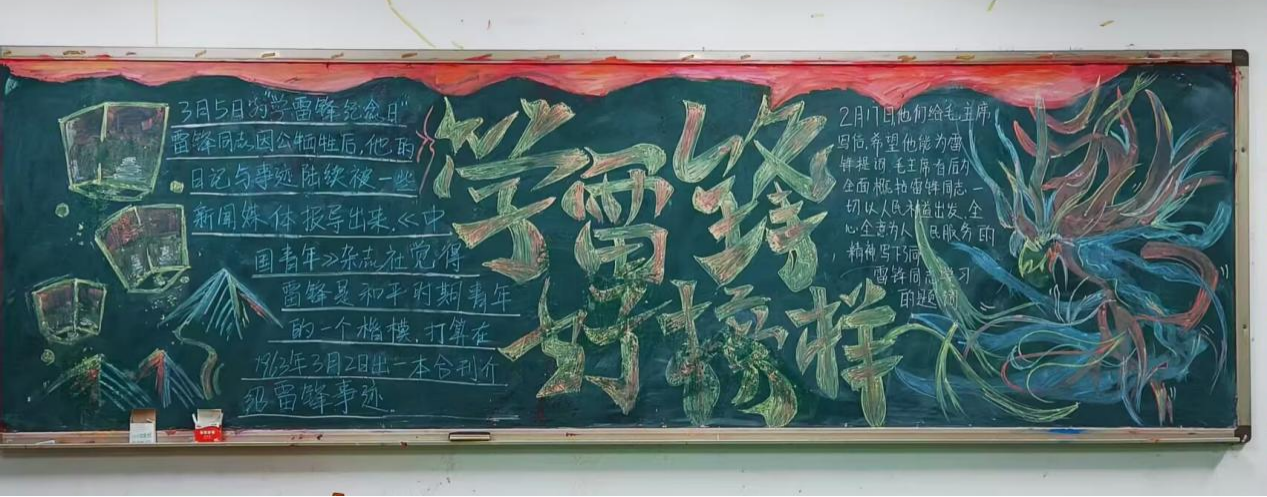 3月5日的"学雷锋纪念日"
雷锋同志因公牺牲后,他的
日记与事迹陆续被一些
新闻媒体报导出来.《中
国青年》杂志社觉得
雷锋是和平时期青年
的一个楷模,打算在
1963年3月2日出一本合刊介
绍雷锋事迹.
学雷锋
好榜样
2月17日他们给毛主席
写信,希望他能为雷
锋提词 毛主席看后为
全面概括雷锋同志一
切从人民利益出发,全
心全意为人民服务的
精神写下
雷锋同志学习
的题词